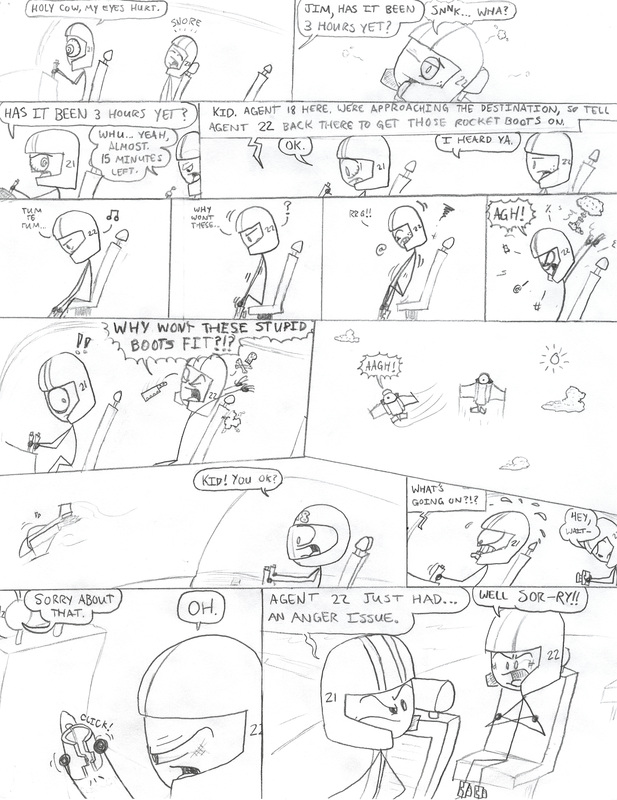 HOLY COW, MY EYES HURT.
21
SNORE
JIM, HAS IT BEEN
3 HOURS YET?
SNNK... WHA?
22
HAS IT BEEN 3 HOURS YET?
21
WHU... YEAH,
ALMOST.
15 MINUTES
LEFT.
KID. AGENT 18 HERE. WE'RE APPROACHING THE DESTINATION, SO TELL
AGENT 22 BACK THERE TO GET THOSE ROCKET BOOTS ON.
OK.
21
I HEARD YA.
22
TUM
TE
TUM...
22
WHY
WONT
THESE...
22
?
RRG!!
@
22
AGH!
22
@
#
!!
21
WHY WONT THESE STUPID
BOOTS FIT?!?
22
AAGH!
KID! YOU OK?
WHAT'S
GOING ON?!?
21
HEY,
WAIT-
SORRY ABOUT
THAT.
CLICK!
OH.
22
AGENT 22 JUST HAD...
AN ANGER ISSUE.
21
WELL SOR-RY!!
22